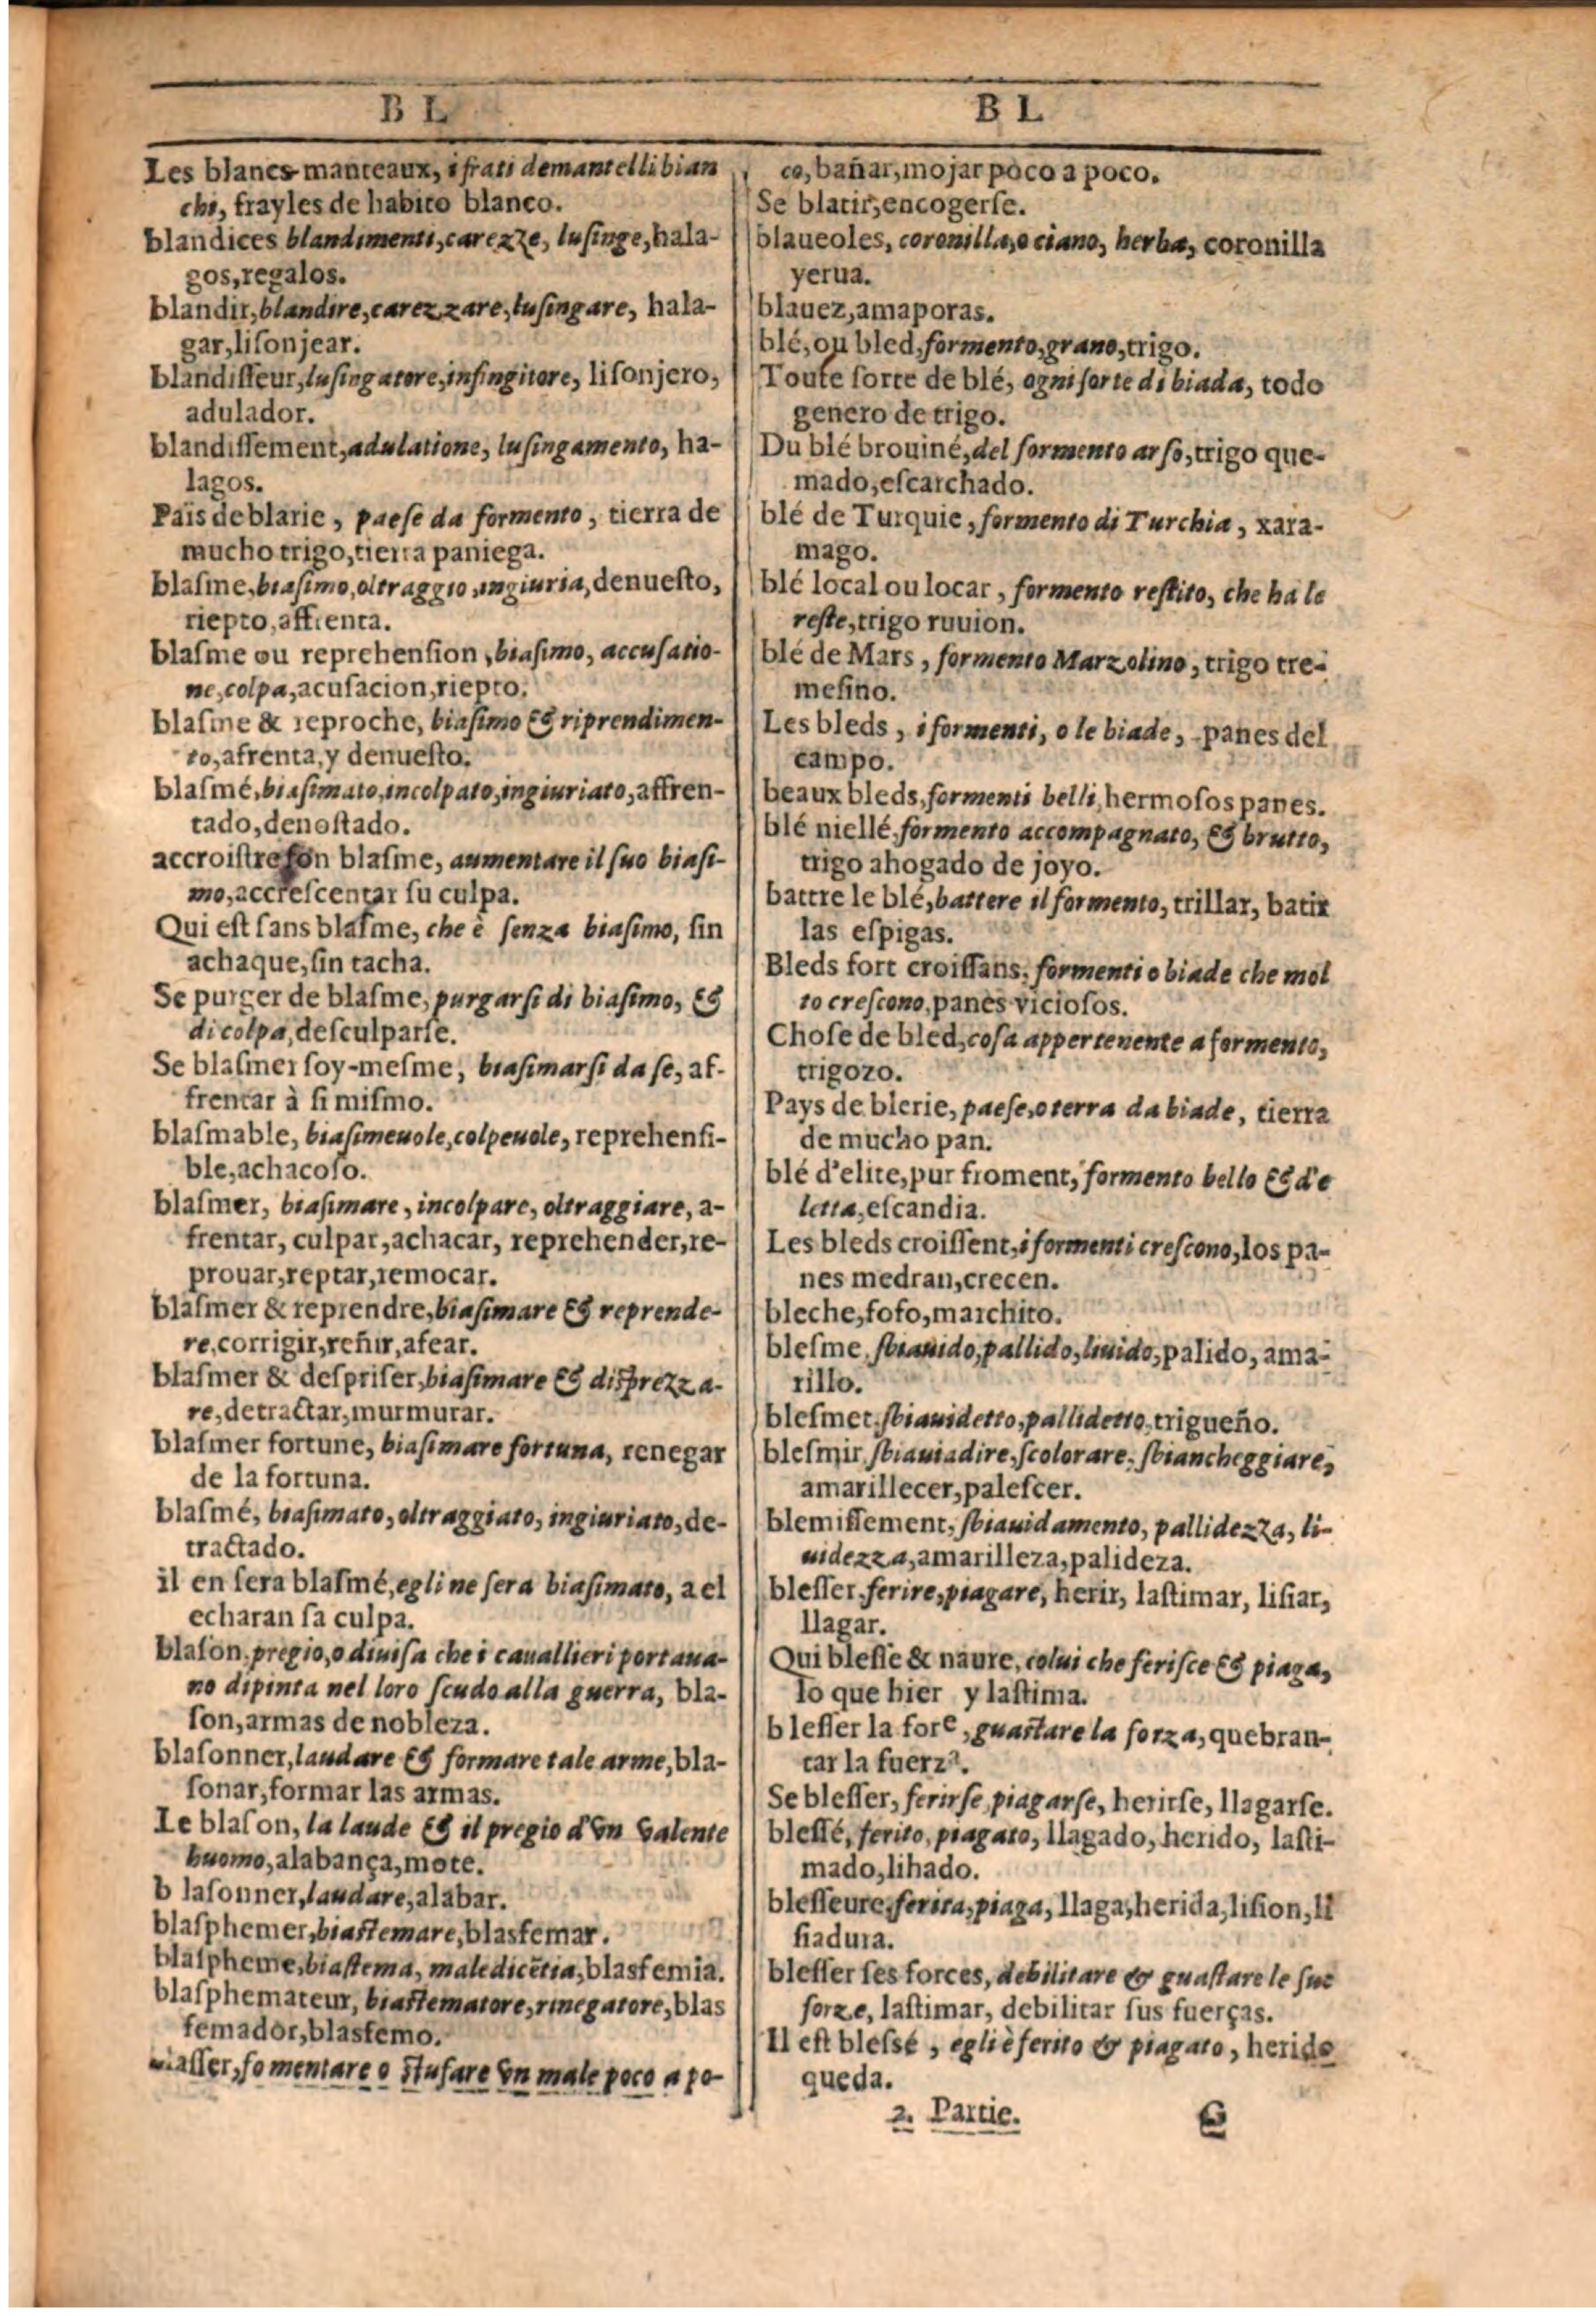 B L
Les blancs manteaux, i frati de mantelli bian
chi, frayles de habito blanco.
blandices blandimenti, carezze, lusinge, hala-
gos, regalos.
blandir, blandire, carezzare, lusingare, hala-
gar, lisonjear.
blandisseur, lusingatore, insingitore, lisonjero,
adulador.
blandissement, adulatione, lusingamento, ha-
lagos.
Païs de blarie, paese da formento, tierra de
mucho trigo, tierra paniega.
blasme, biasimo, oltraggio, ingiuria, denuesto,
riepto, affrenta.
blasme ou reprehension, biasimo, accusatio-
ne, colpa, acusacion, riepto.
blasme & reproche, biasimo & riprendimen-
to, afrenta, y denuesto.
blasmé, biasimato, incolpato, ingiuriato, affren-
tado, denostado.
accroistre son blasme, aumentare il suo biasi-
mo, accrescentar su culpa.
Qui est sans blasme, che è senza biasimo, sin
achaque, sin tacha.
Se purger de blasme, purgarsi di biasimo, &
di colpa, desculparse.
Se blasmer soy-mesme, biasimarsi da se, af-
frentar à si mismo.
blasmable, biasimeuole, colpeuole, reprehensi-
ble, achacoso.
blasmer, biasimare, incolpare, oltraggiare, a-
frentar, culpar, achacar, reprehender, re-
prouar, reptar, remocar.
blasmer & reprendre, biasimare & reprende-
re, corrigir, reñir, afear.
blasmer & despriser, biasimare & disprezza-
re, detractar, murmurar.
blasmer fortune, biasimare fortuna, renegar
de la fortuna.
blasmé, biasimato, oltraggiato, ingiuriato, de-
tractado.
il en sera blasmé, egli ne sera biasimato, a el
echaran sa culpa.
blason, pregio, o diuisa che i cauallieri portaua-
no dipinta nel loro scudo alla guerra, bla-
son, armas de nobleza.
blasonner, laudare & formare tale arme, bla-
sonar, formar las armas.
Le blason, la laude & il pregio d'vn valente
huomo, alabança, mote.
b lasonner, laudare, alabar.
blasphemer, biastemare, blasfemar.
blaspheme, biastema, maledicẽtia, blasfemia.
blasphemateur, biastematore, rinegatore, blas
femador, blasfemo.
blasser, fomentare o stufare vn male poco a po-
B L
co, bañar, mojar poco a poco.
Se blatir, encogerse.
blaueoles, coronilla, o ciano, herba, coronilla
yerua.
blauez, amaporas.
blé, ou bled, formento, grano, trigo.
Toute sorte de blé, ogni sorte di biada, todo
genero de trigo.
Du blé brouiné, del formento arso, trigo que-
mado, escarchado.
blé de Turquie, formento di Turchia, xara-
mago.
blé local ou locar, formento restito, che ha le
reste, trigo ruuion.
blé de Mars, formento Marzolino, trigo tre-
mesino.
Les bleds, i formenti, o le biade, panes del
campo.
beaux bleds, formenti belli, hermosos panes.
blé niellé, formento accompagnato, & brutto,
trigo ahogado de joyo.
battre le blé, battere il formento, trillar, batir
las espigas.
Bleds fort croissans, formenti o biade che mol
to crescono, panes viciosos.
Chose de bled, cosa appertenente a formento,
trigozo.
Pays de blerie, paese, o terra da biade, tierra
de mucho pan.
blé d'elite, pur froment, formento bello & d'e
letta, escandia.
Les bleds croissent, i formenti crescono, los pa-
nes medran, crecen.
bleche, fofo, marchito.
blesme, sbiauido, pallido, liuido, palido, ama-
rillo.
blesmet, sbiauidetto, pallidetto, trigueño.
blesmir, sbiauiadire, scolorare, sbiancheggiare,
amarillecer, palescer.
blemissement, sbiauidamento, pallidezza, li-
uidezza, amarilleza, palideza.
blesser, ferire, piagare, herir, lastimar, lisiar,
llagar.
Qui blesse & naure, colui che ferisce & piaga,
lo que hier y lastima.
b lesser la forc, guastare la forza, quebran-
tar la fuerza.
Se blesser, ferirse, piagarse, herirse, llagarse.
blessé, ferito, piagato, llagado, herido, lasti-
mado, lihado.
blesseure, ferita, piaga, llaga, herida, lision, li
siadura.
blesser ses forces, debilitare & guastare le sue
forze, lastimar, debilitar sus fuerças.
Il est blessé, egli è ferito & piagato, herido
queda.
2. Partie. G